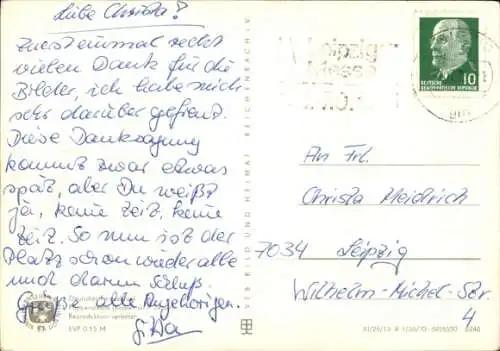 Liebe Christa!
Zuerst einmal recht
vielen Dank für die
Bilder, ich habe mich
sehr darüber gefreut.
Diese Danksagung
kommt zwar etwas
spät, aber Du weißt
ja, keine Zeit, keine
Zeit. So nun ist der
Platz schon wieder alle
und darum Schluß.
Grüße alle Angehörigen.
EVP 0,15 M
VEB BILD UND HEIMAT REICHENBACH I. V.
Leipziger
Messe
10
DEUTSCHE
DEMOKRATISCHE REPUBLIK
An Frl.
Christa Meidrich
7034 Leipzig
Wilhelm-Michel-Str.
4